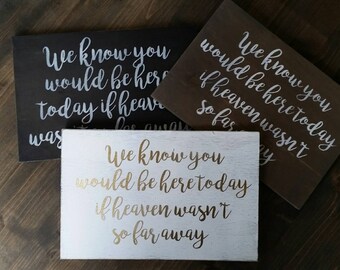 We know you
would be here
today if heaven
wasn't so far away
We know you
would be here today
if heaven wasn't
so far away
We know you
would be here today
if heaven wasn't
so far away